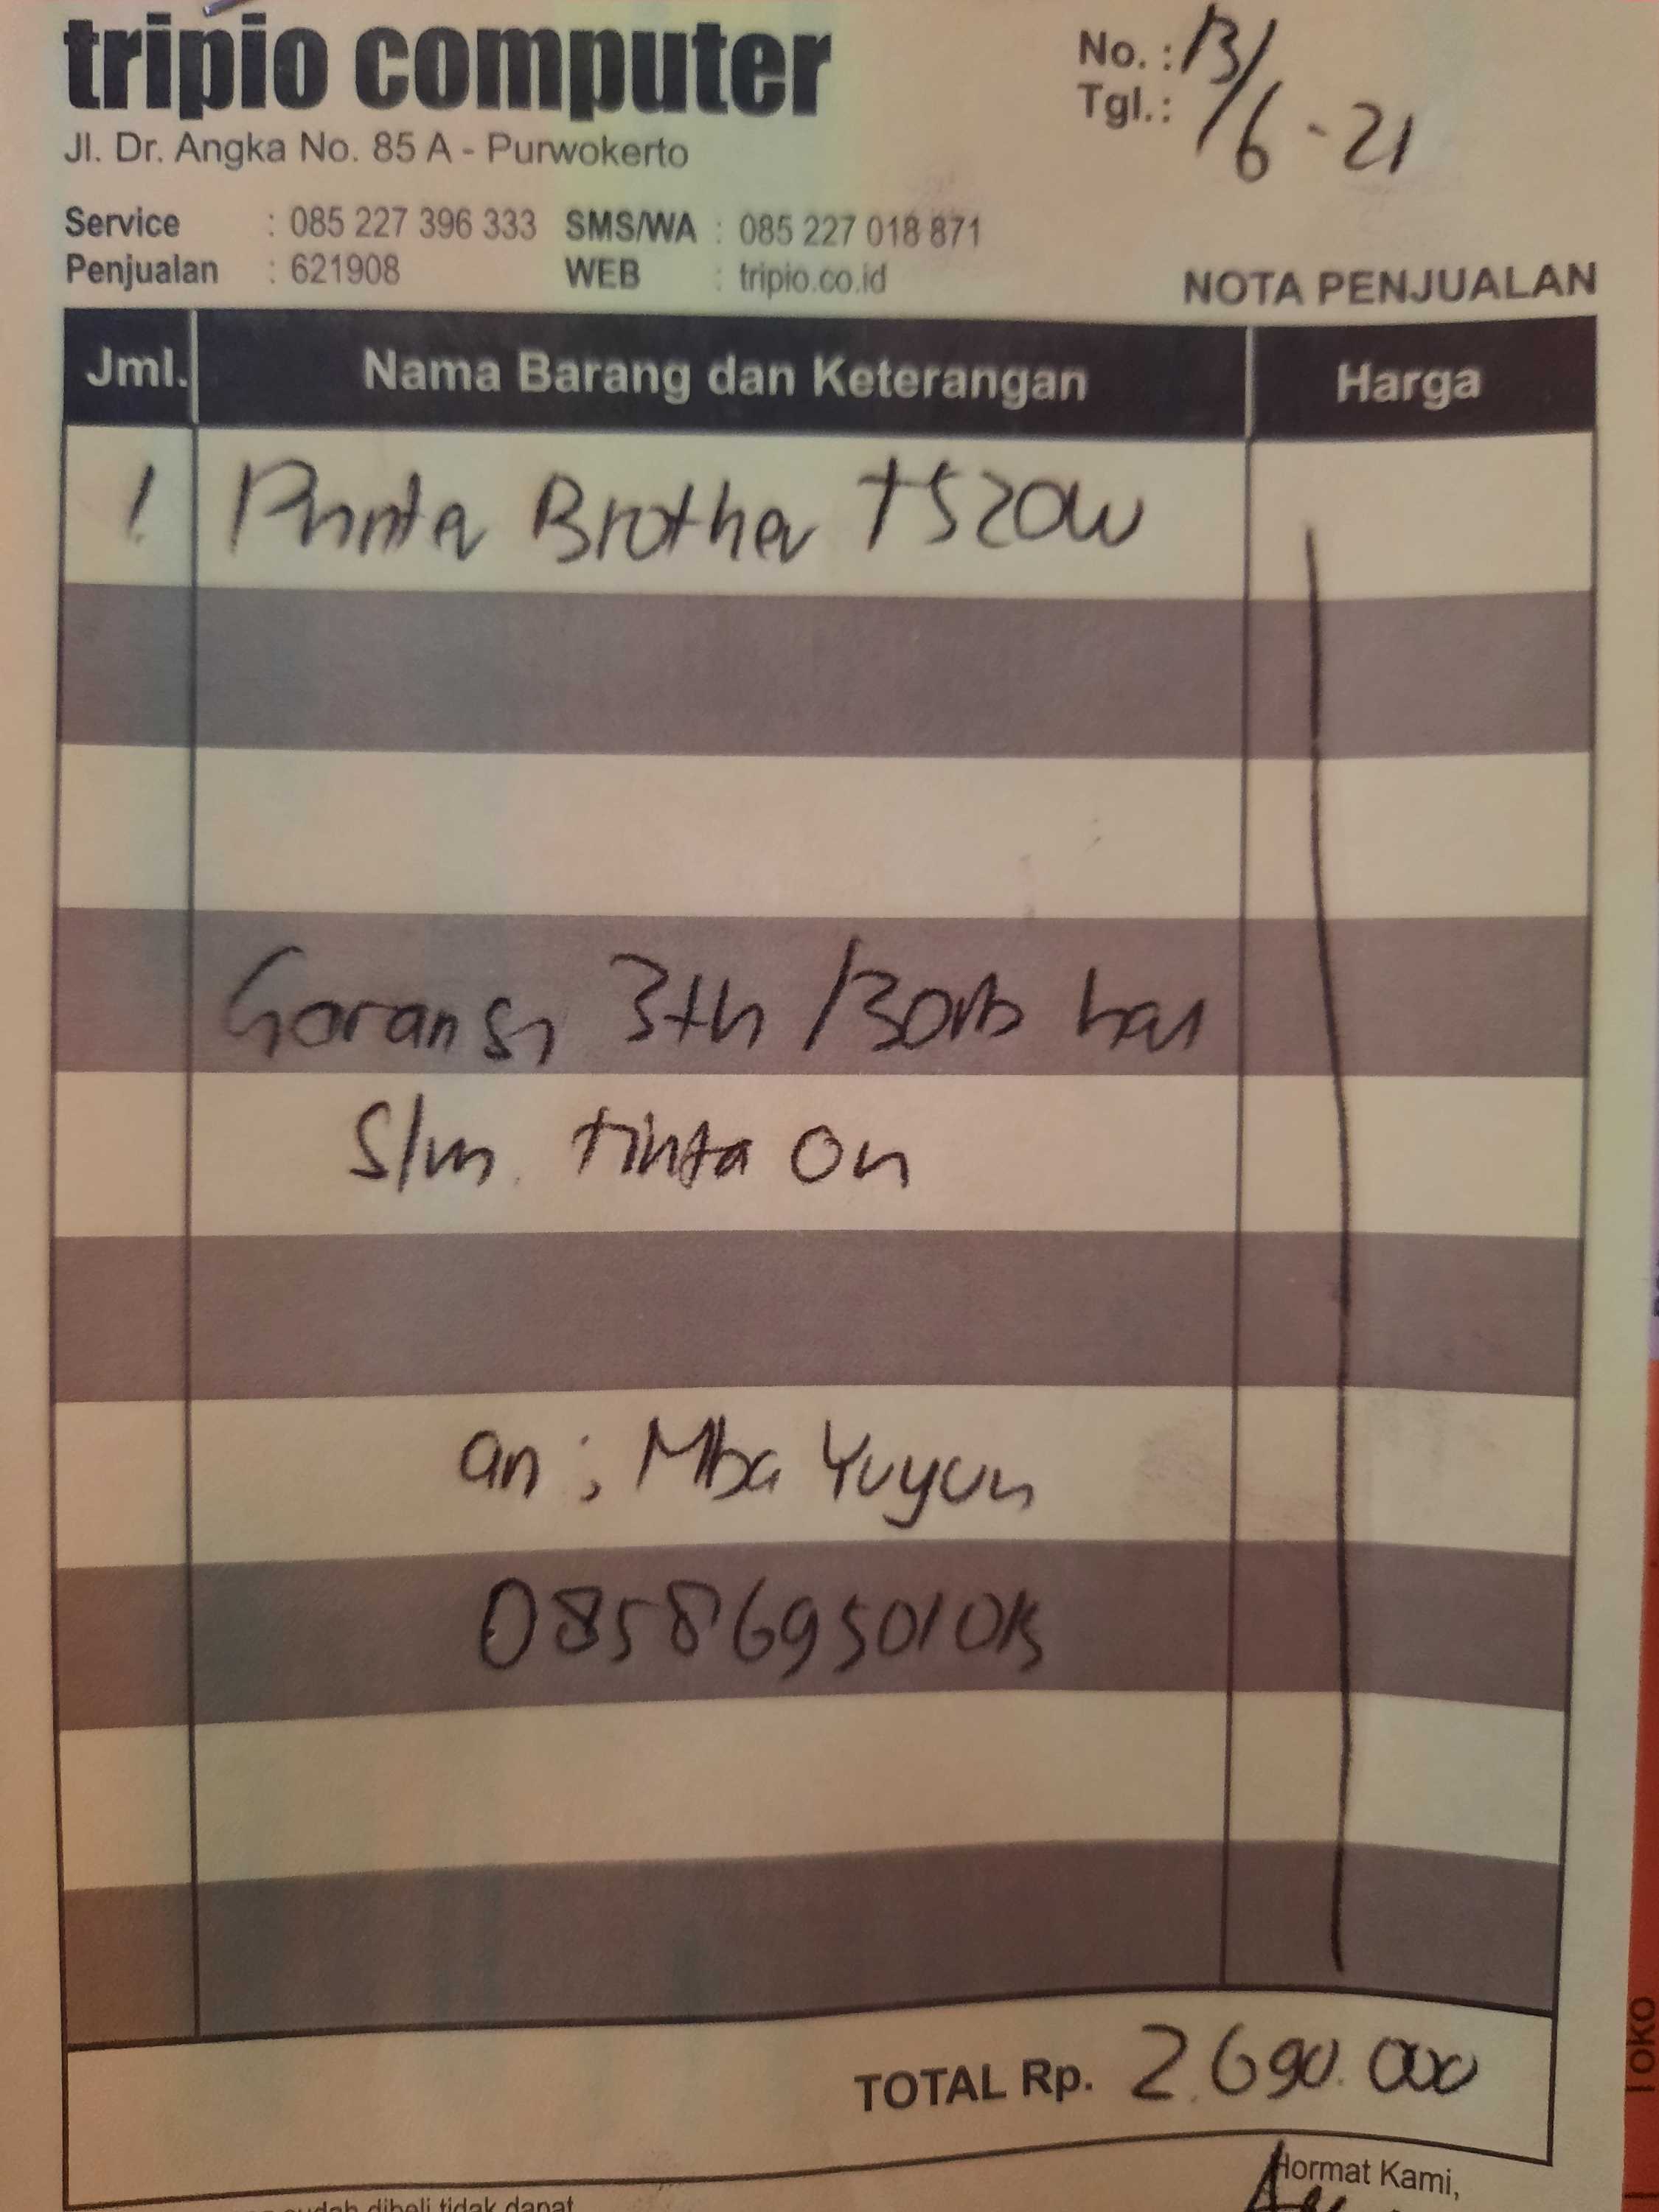 tripio computer
Jl. Dr. Angka No. 85 A - Purwokerto
No. : 13/
Tgl.: 6 - 21
Service : 085 227 396 333 SMS/WA : 085 227 018 871
Penjualan : 621908 WEB : tripio.co.id
NOTA PENJUALAN
Jml. Nama Barang dan Keterangan Harga
1 Printer Brother T520W
Garansi 3th /30rb
S/m tinta On
an : Mba Yuyun
TOTAL Rp. 2.690.000
Hormat Kami,
sudah dibeli tidak dapat
TOKO